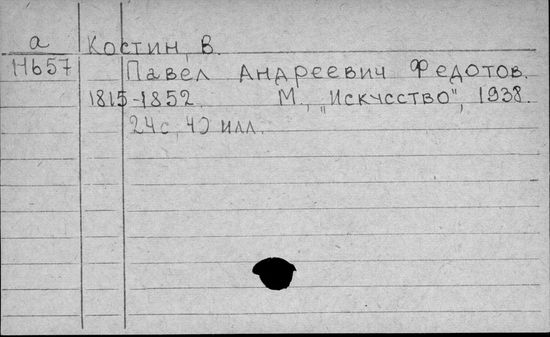 а Костин, В.
11657 Павел Андреевич Федотов.
1815-1852. М., „Искусство", 1938.
24с, 40 илл.